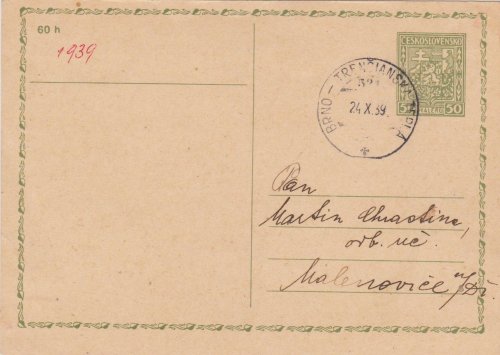 60 h
1939
ČESKOSLOVENSKO
50
HALÉŘŮ
BRNO – TRENČIANSKA TEPLÁ
24.X.39
Pan
Martin Chrastina,
odb. uč.
Malenovice